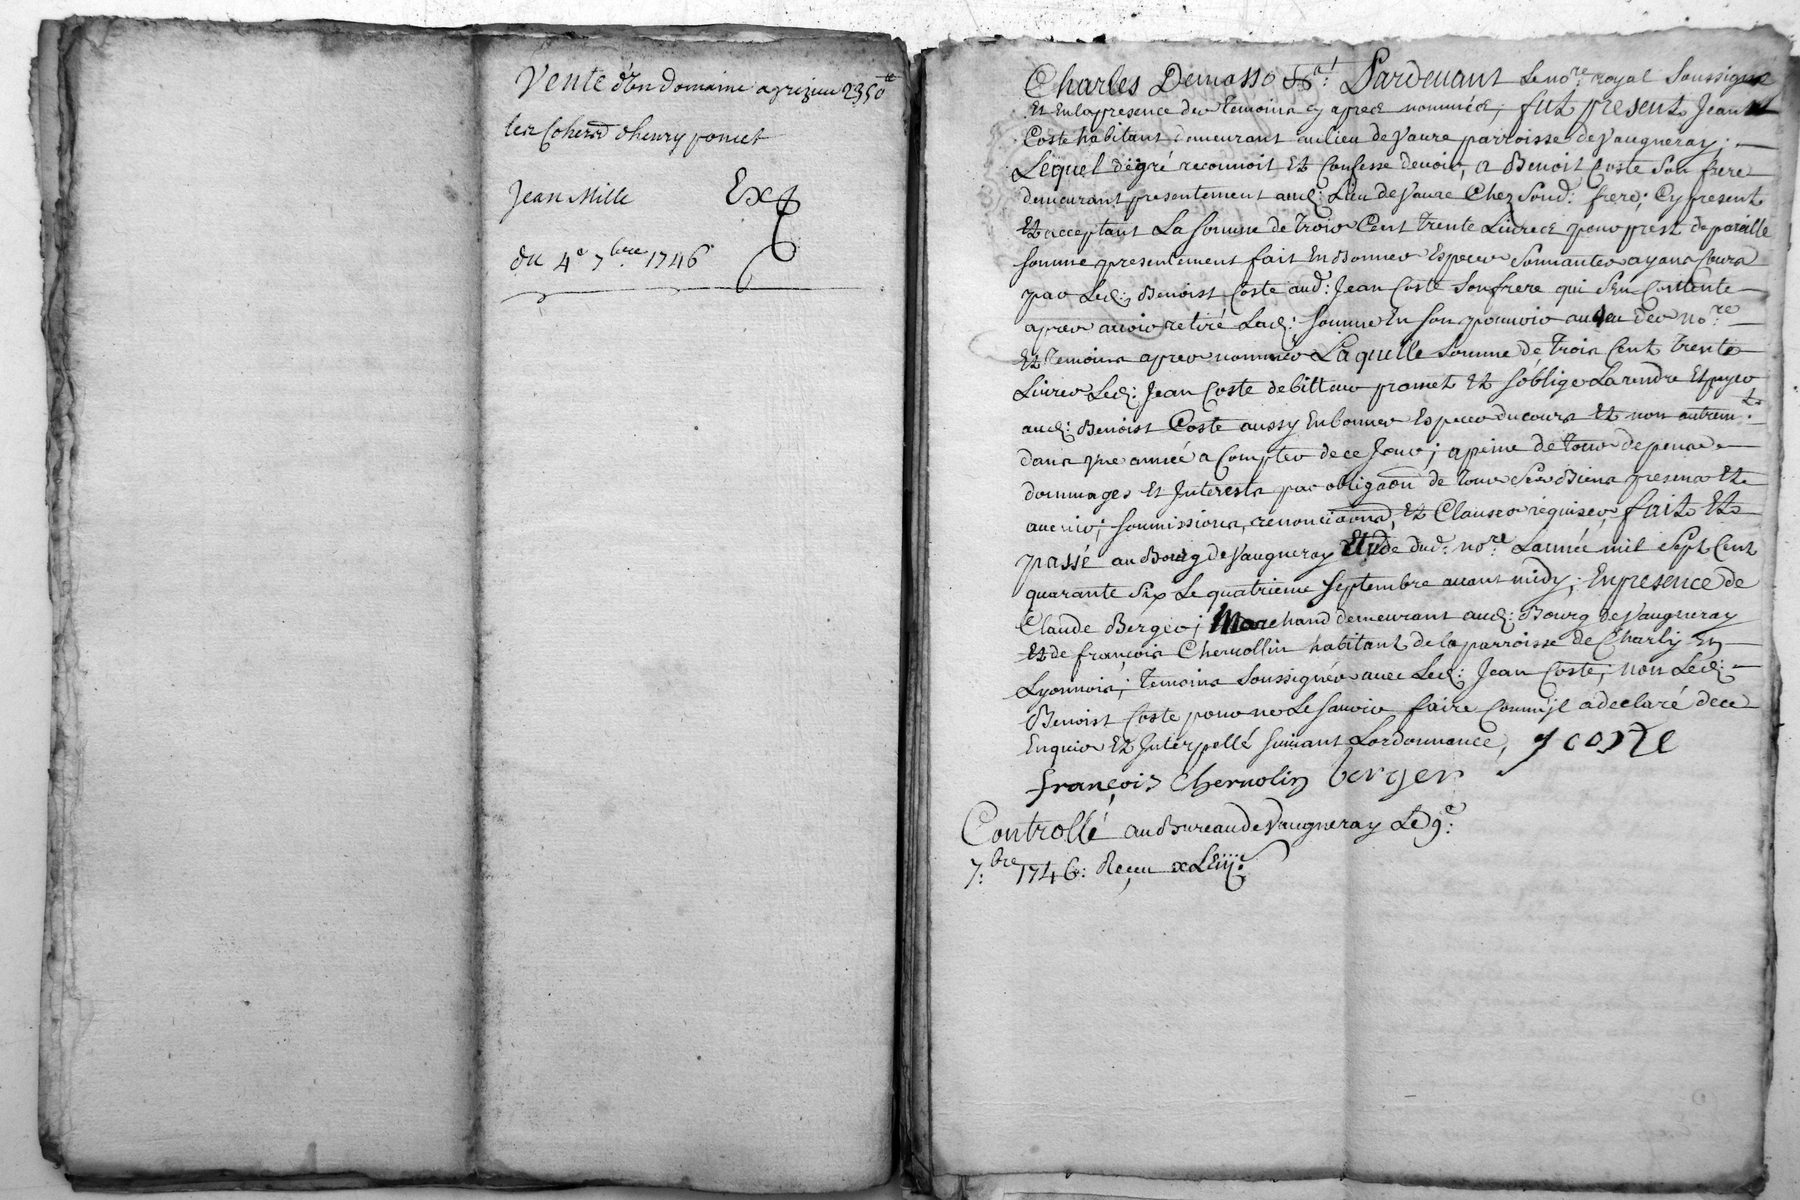 Vente d'un domaine a grizieu 2350 ₶
les Coherd d'henry poncet
Jean Mille Ex
du 4e 7bre 1746
Charles Demasso Pardevant Le nore royal Soussigné
Et En la presence des temoins cy apres nommés, fut present Jean
Coste habitant demeurant au lieu de Vaure parroisse de Vaugneray;
Lequel de gré reconnoit Et Confesse devoir, a Benoit Coste Son frere
demeurant presentement aud: Lieu de Vaure Chez Sond: frere; Cy present
Et acceptant La Somme de trois Cent trente Livres pour prest de pareille
somme presentement fait En Bonnes Especes Sonnantes ayans Cours
par Led: Benoist Coste aud: Jean Coste Son frere qui S'en Contente
apres avoir retiré Lad: Somme En Son pouvoir au veu des nore
Et temoins apres nommés Laquelle Somme de trois Cent trente
Livres Led: Jean Coste debitteur promet Et s'oblige La rendre Et payer
aud: Benoist Coste aussy En bonnes Especes du cours Et non autremt
dans une année a Compter de ce Jour; a peine de tous depens
dommages Et Interests par obligaon de tous Ses Biens presens Et
avenir; soumissions, renonciaons, Et Clauses requises, fait Et
passé au Bourg de Vaugneray Etude dud: nore L'année mil Sept Cent
quarante Six Le quatrieme Septembre avant midy; En presence de
Claude Berger; Marchand demeurant aud: Bourg de Vaugneray
Et de françois Chervollin habitant de la parroisse de Charly En
Lyonnois; temoins Soussignés avec Led: Jean Coste; non Led:
Benoist Coste pour ne Le Savoir faire Comm'jl a declaré de ce
Enquis Et Interpellé suivant L'ordonnance, J coste
françois chervolin berger
Controllé au Bureau de Vaugneray Le 9e:
7:bre 1746: Reçeu